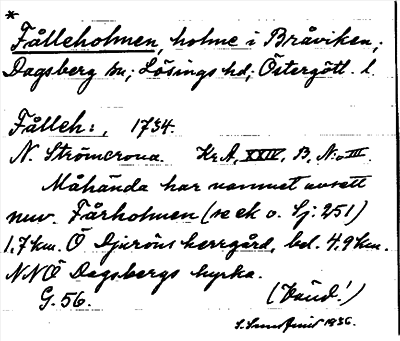 *
Fålleholmen, holme i Bråviken;
Dagsberg sn; Lösings hd; Östergötl. l.
Fålleh:, 1734.
N. Strömcrona. KrA, XXIV, B, N:o III.
Måhända har namnet avsett
nuv. Fårholmen (se ek o. Sj: 251)
1,7 km. Ö Djuröns herrgård, bel. 4.9 km.
NNÖ Dagsbergs kyrka.
G. 56. (Vänd!)
1936.